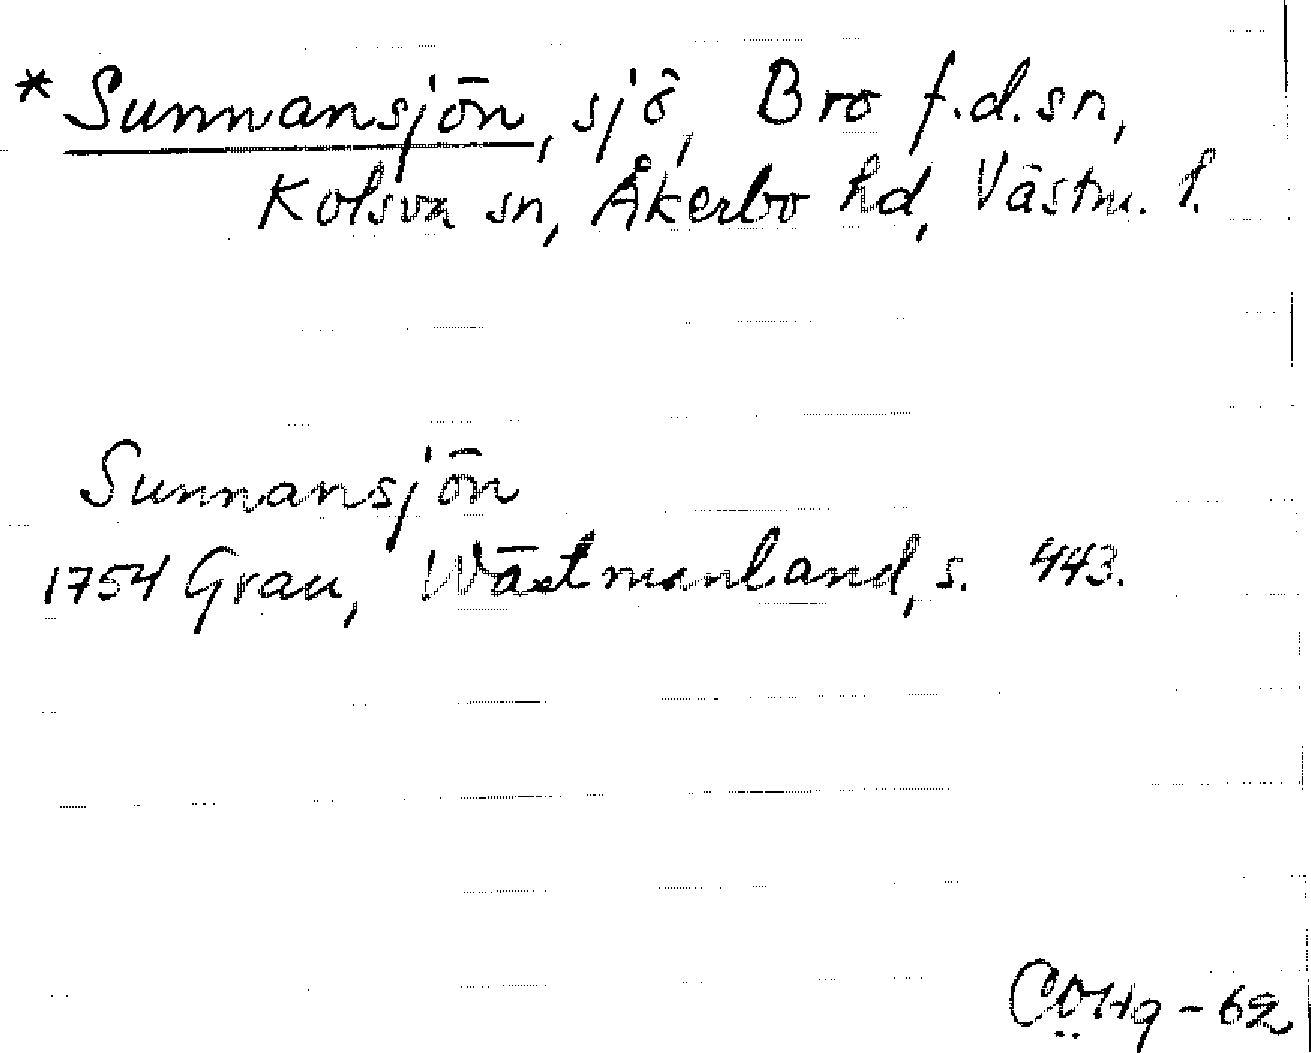 * Sunnansjön, sjö, Bro f.d.sn,
Kolsva sn, Åkerbo hd, Västm. l.
Sunnansjön
1754 Grau, Wästmanland, s. 443.